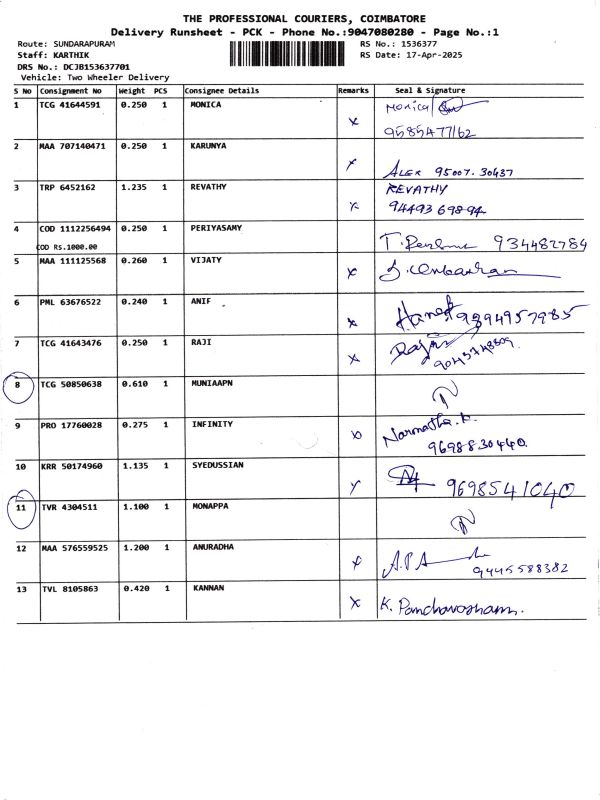 THE PROFESSIONAL COURIERS, COIMBATORE
Delivery Runsheet - PCK - Phone No.:9047080280 - Page No.:1
Route: SUNDARAPURAM
Staff: KARTHIK
DRS No.: DCJB153637701
Vehicle: Two Wheeler Delivery
RS No.: 1536377
RS Date: 17-Apr-2025
S No Consignment No Weight PCS Consignee Details Remarks Seal & Signature
1 TCG 41644591 0.250 1 MONICA x Monica
9585477162
2 MAA 707140471 0.250 1 KARUNYA x ALEX 95007.30437
3 TRP 6452162 1.235 1 REVATHY x REVATHY
94493 69894
4 COD 1112256494 0.250 1 PERIYASAMY
COD RS.1000.00 934482784
5 MAA 111125568 0.260 1 VIJATY x
6 PML 63676522 0.240 1 ANIF x
7 TCG 41643476 0.250 1 RAJI x
8 TCG 50850638 0.610 1 MUNIAAPN N
9 PRO 17760028 0.275 1 INFINITY Narmatha.K
9698830440
10 KRR 50174960 1.135 1 SYEDUSSIAN 9698541040
11 TVR 4304511 1.100 1 MONAPPA N
12 MAA 576559525 1.200 1 ANURADHA A.P.A
9445588382
13 TVL 8105863 0.420 1 KANNAN x K.